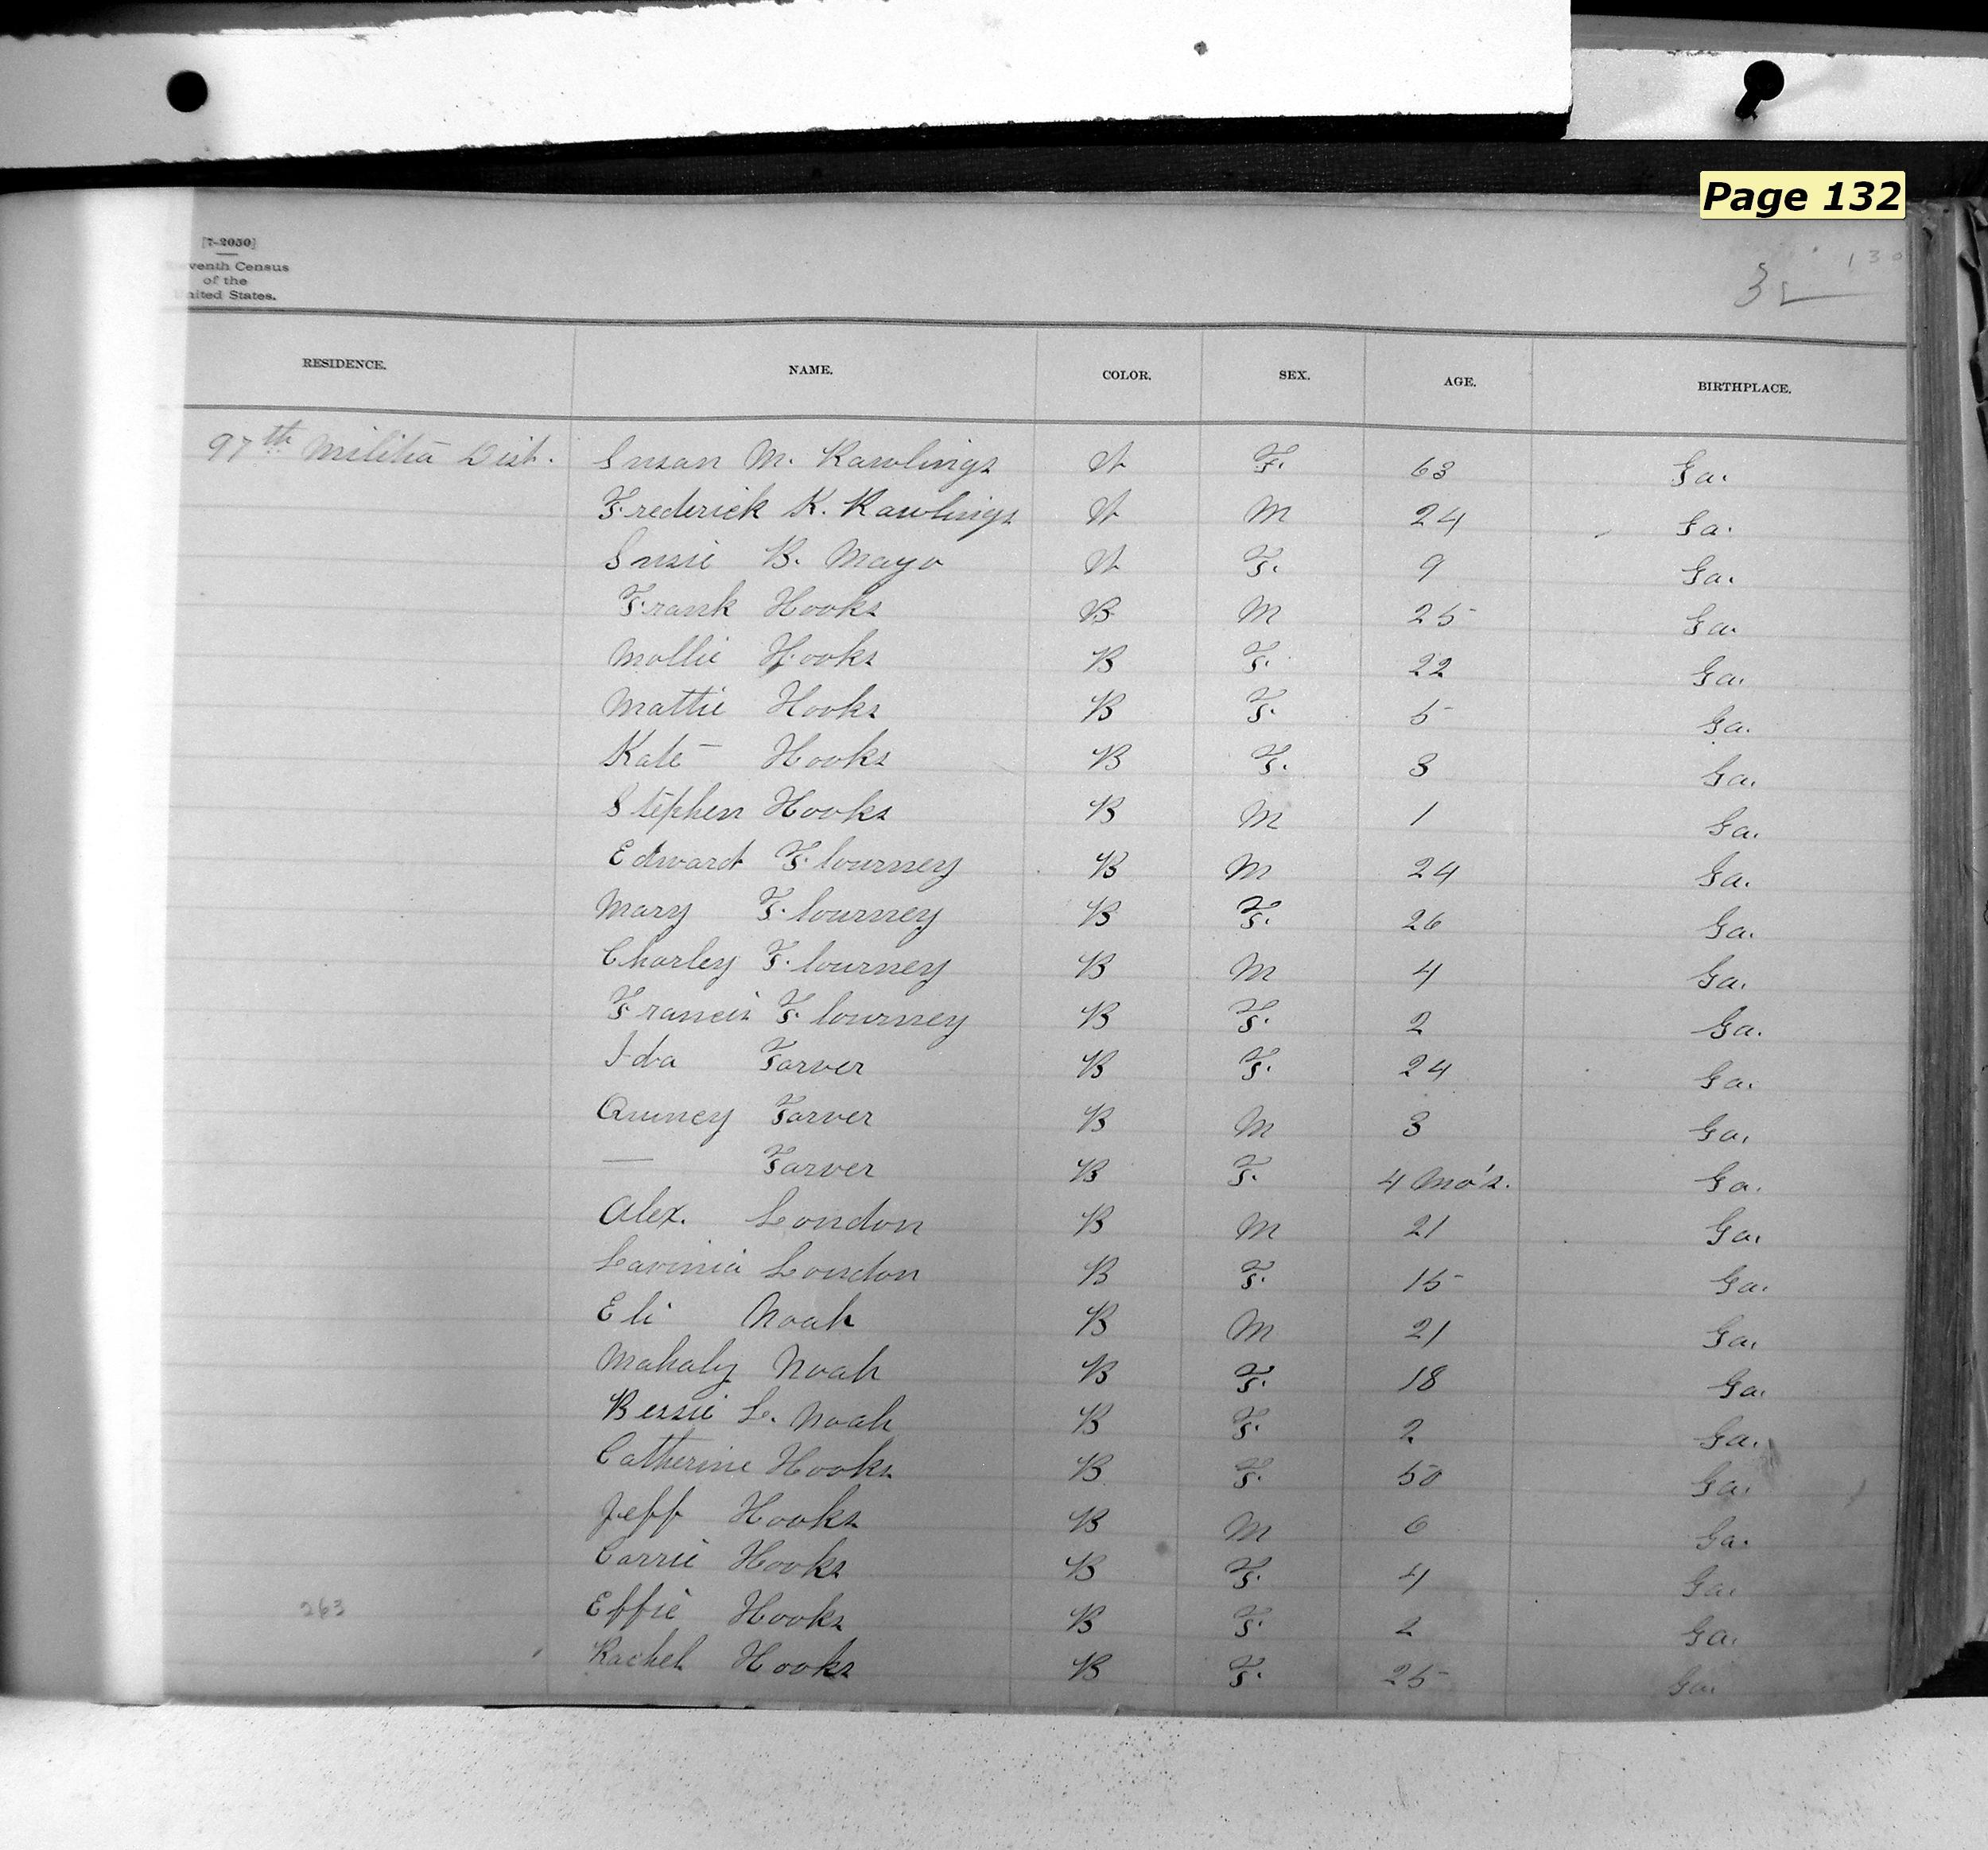 Page 132
[7-2050]
venth Census
of the
nited States.
130
32
RESIDENCE. NAME. COLOR. SEX. AGE. BIRTHPLACE.
97th Militia Dist. Susan M. Rawlings W F. 63 Ga.
Frederick K. Rawlings W M 24 Ga.
Susie B. Mayo W F. 9 Ga.
Frank Hooks B M 25 Ga.
Mollie Hooks B F. 22 Ga.
Mattie Hooks B F. 5 Ga.
Kate Hooks B F. 3 Ga.
Stephen Hooks B M 1 Ga.
Edward Flourney B M 24 Ga.
Mary Flourney B F. 26 Ga.
Charley Flourney B M 4 Ga.
Francis Flourney B F. 2 Ga.
Ida Tarver B F. 24 Ga.
Quincy Tarver B M 3 Ga.
— Tarver B F. 4 mo's. Ga.
Alex. London B M 21 Ga.
Lavinia London B F. 15 Ga.
Eli Noah B M 21 Ga.
Mahaly Noah B F. 18 Ga.
Bessie L. Noah B F. 2 Ga.
Catherine Hooks B F. 50 Ga.
Jeff Hooks B M 6 Ga.
Carrie Hooks B F. 4 Ga.
263 Effie Hooks B F. 2 Ga.
Rachel Hooks B F. 25 Ga.